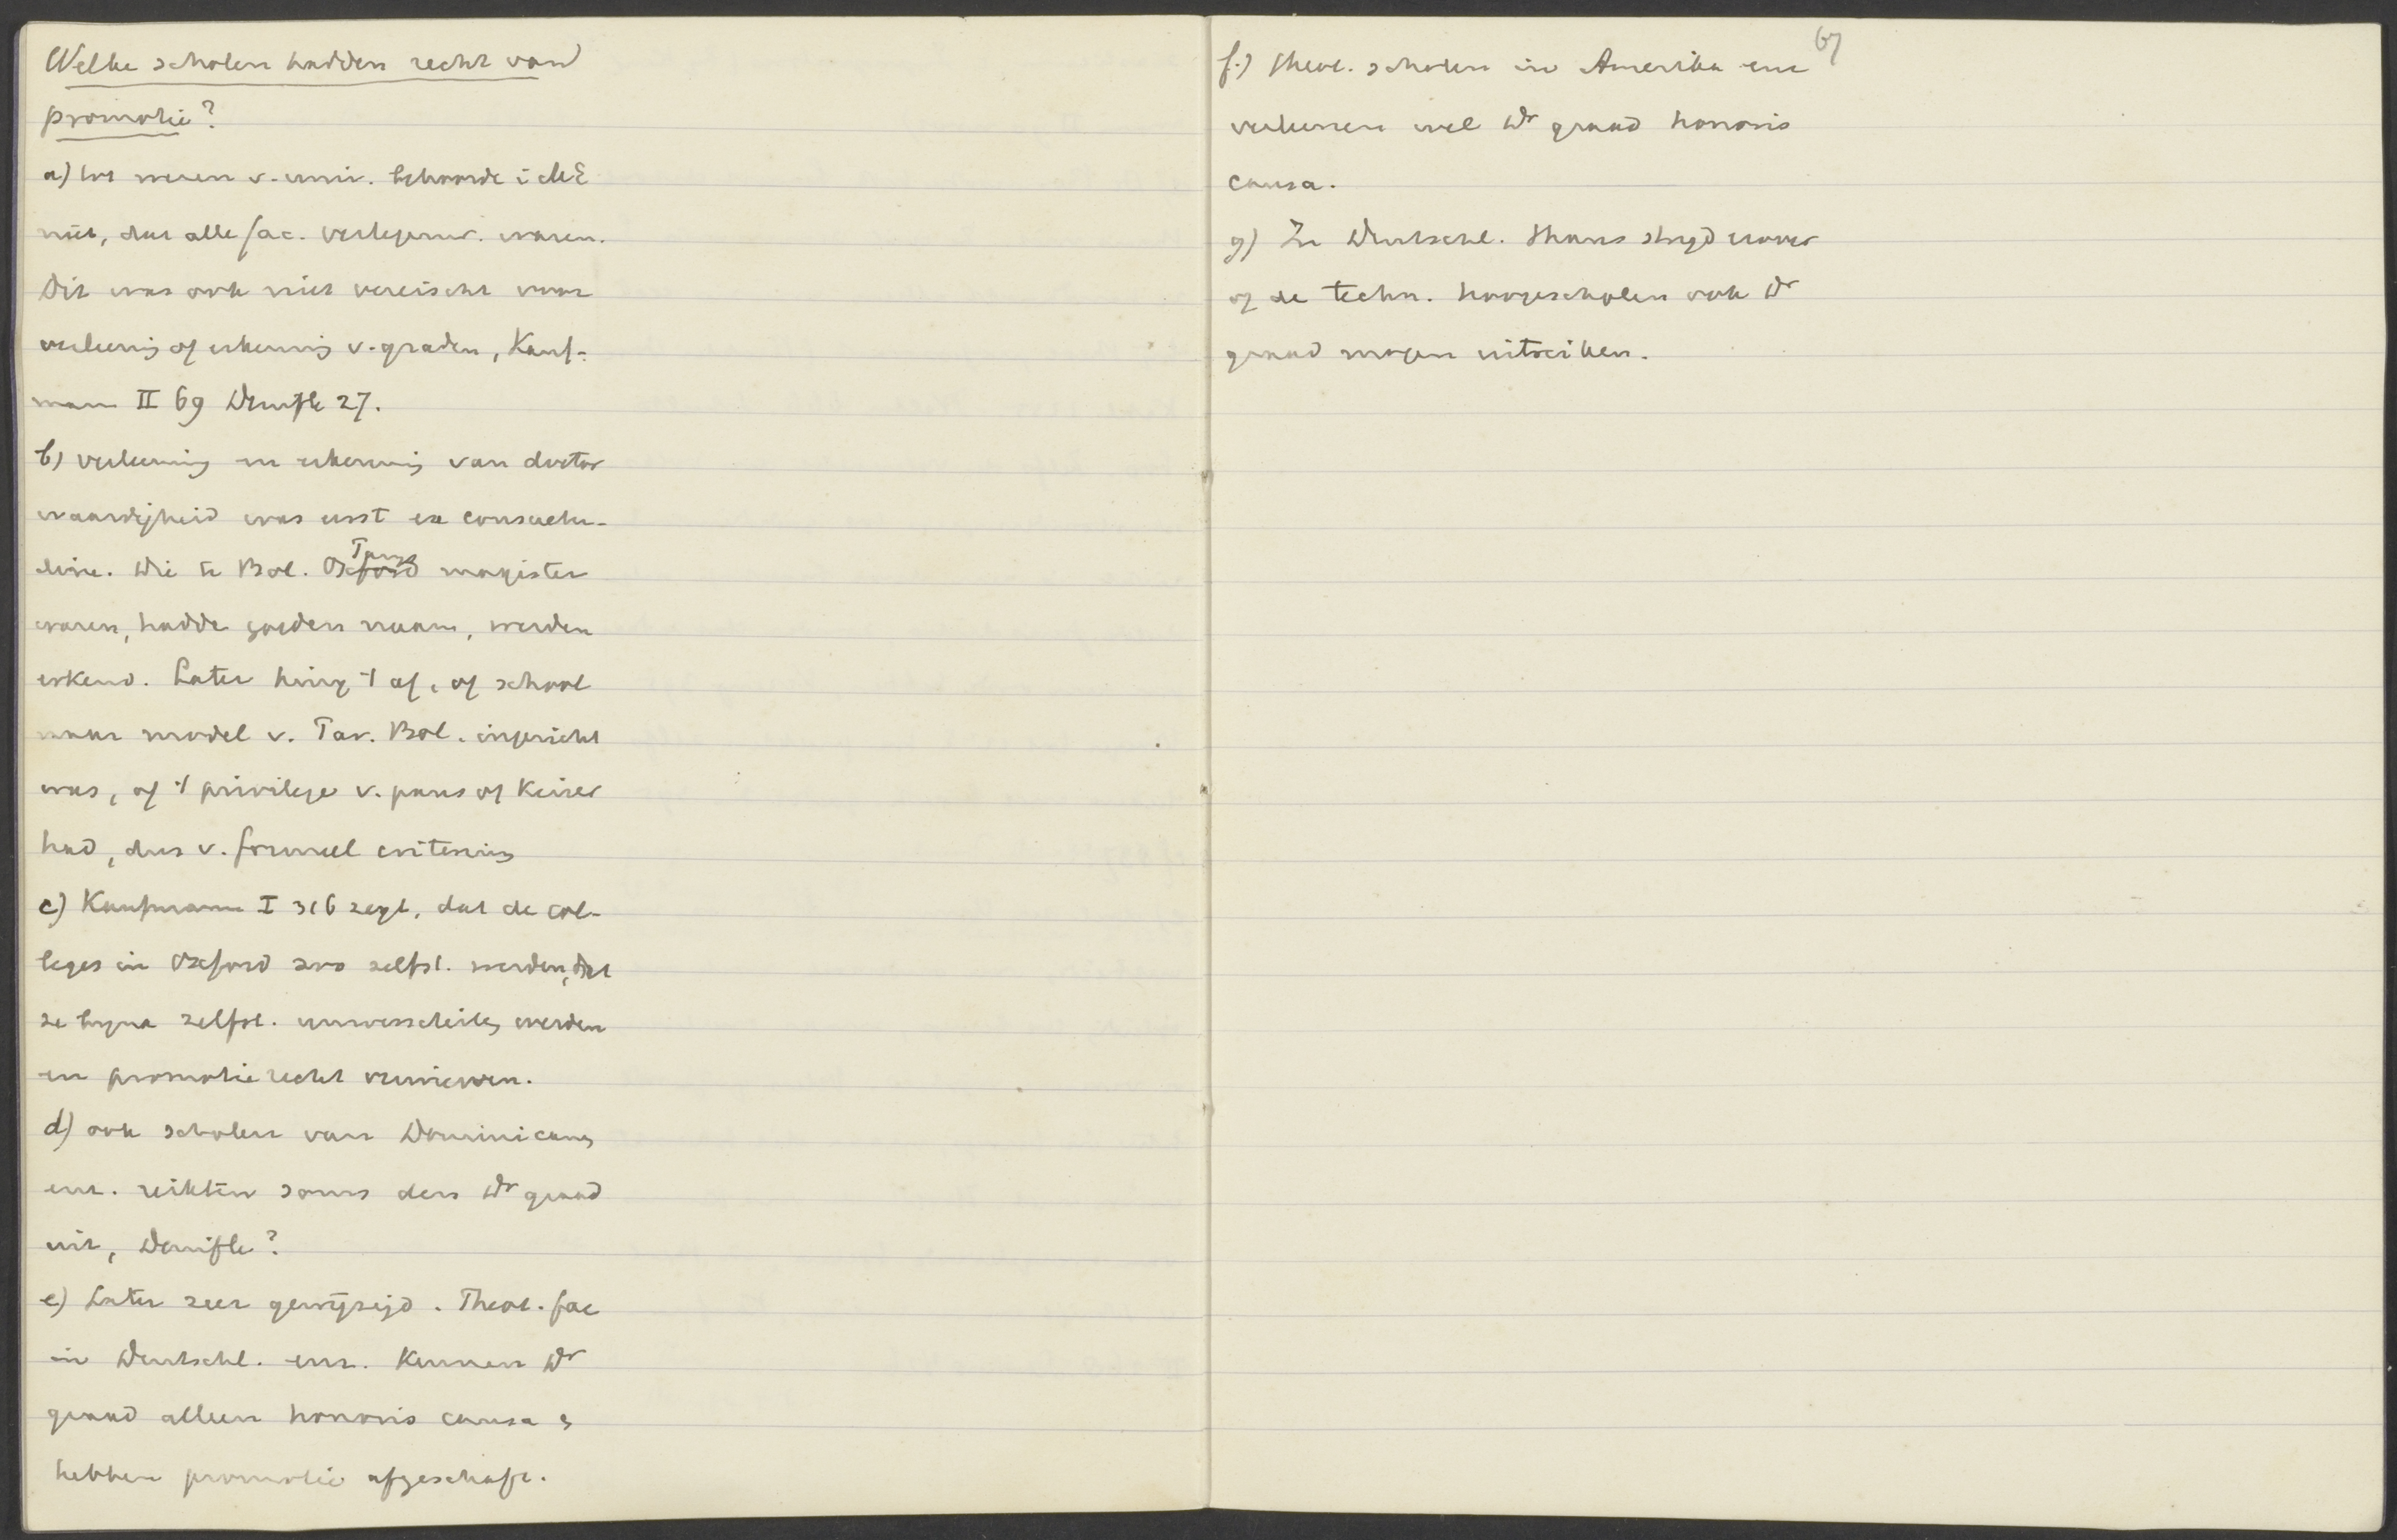 Welke scholen hadden recht van
promotie?
a) tot wezen v. univ. behoorde i ME
niet, dat alle fac. vertegenw. waren.
Dit was ook niet vereischt voor
verleenig of erkennig v. graden, Kauf-
mann II 69 Denifle 27.
b) verleening en erkennig van doctor
waardigheid was eerst ex consuetu-
dine. Wie te Bol. Parijs magister
waren, hadde goeden naam, werden
erkend. Later hing 't af, of school
naar model v. Par. Bol. ingericht
was, of 't privilege v. paus of Keizer
had, dus v. formeel criterium
c) Kaufmann I 316 zegt, dat de col-
leges in Oxford zoo zelfst. werden, dat
ze byna zelfst. universiteite werden
en promotierecht verwierven.
d) ook scholen van Dominicanen
enz. reikten soms den Dr graad
uit, Denifle?
e) Later zeer gewijzigd. Theol. fac
in Deutschl. enz. kennen Dr
graad alleen honoris causa &
hebben promotie afgeschaft.
67
f.) Theol. scholen in Amerika enz
verleenen wel Dr graad honoris
causa.
g) In Deutschl. thans stryd erover
of de techn. hoogescholen ook Dr
graad mogen uitreiken.